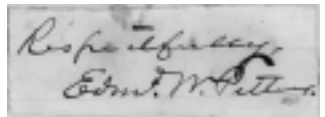 Respectfully,
Edm'd. W. Pettus.